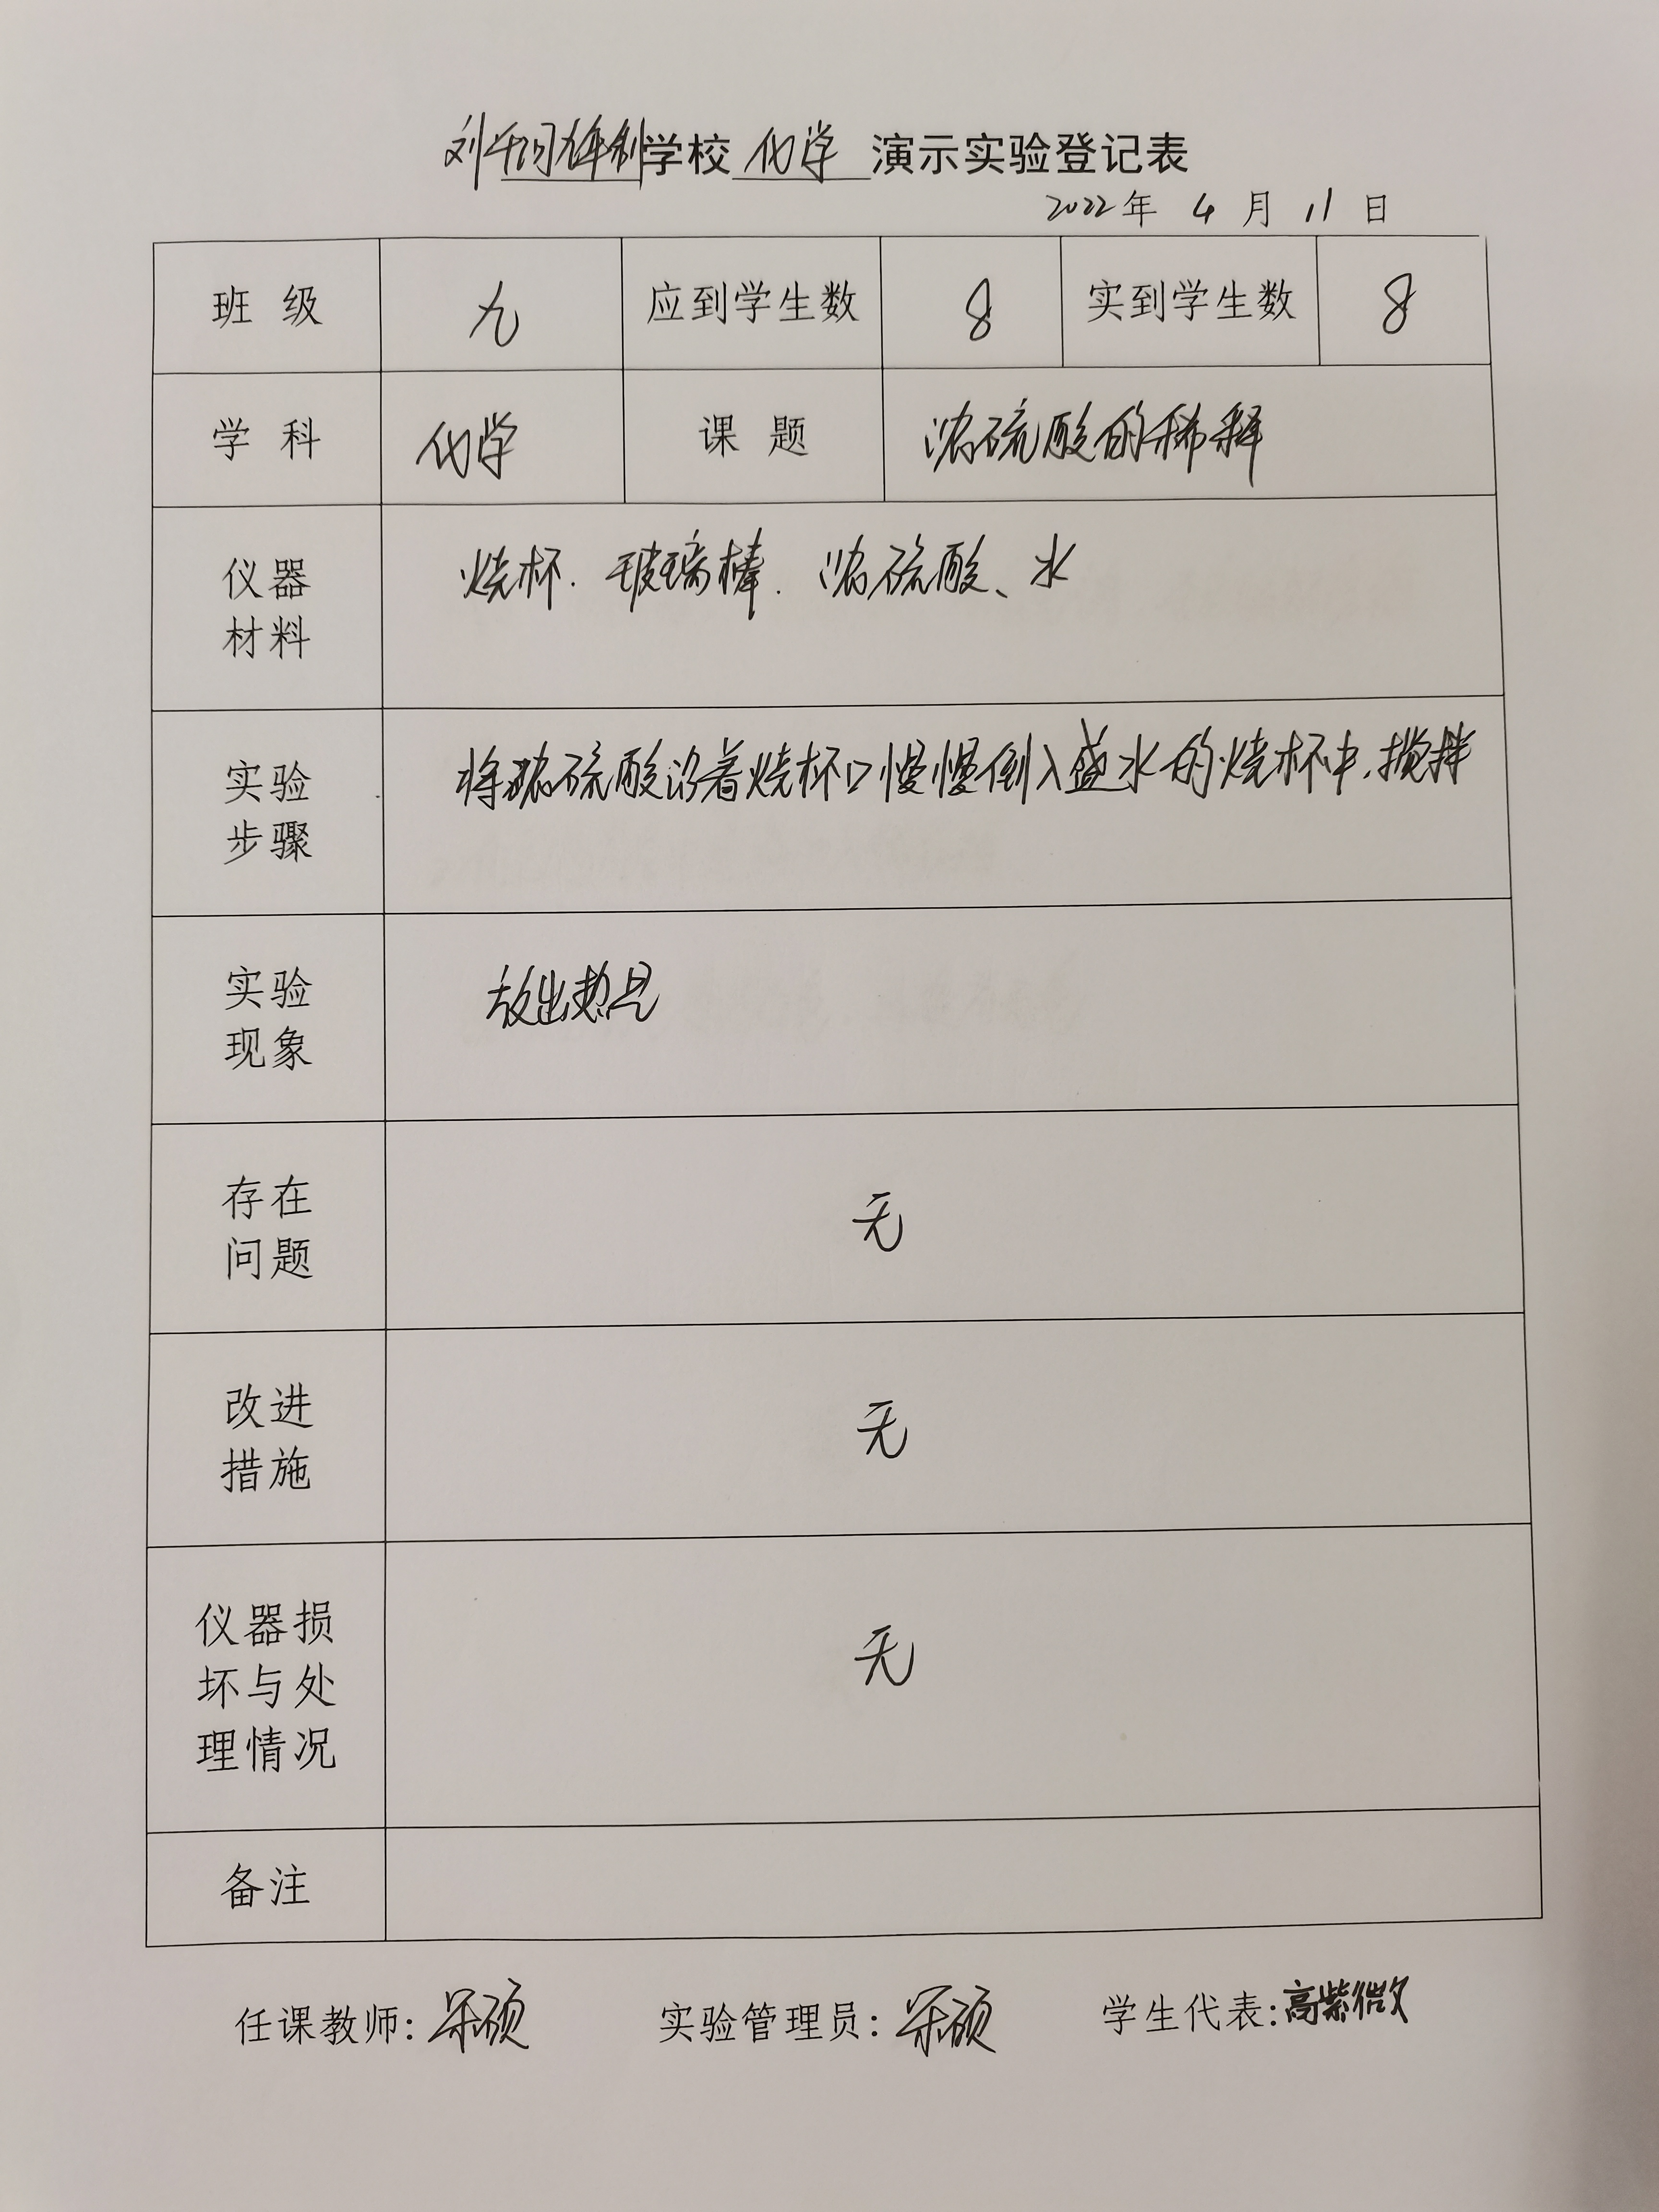 刘千河九年制学校 化学 演示实验登记表
2022年 4 月 11 日
班 级 九 应到学生数 8 实到学生数 8
学 科 化学 课 题 浓硫酸的稀释
仪器
材料
烧杯. 玻璃棒. 浓硫酸、水
实验
步骤
将浓硫酸沿着烧杯口慢慢倒入盛水的烧杯中,搅拌
实验
现象
放出热量
存在
问题
无
改进
措施
无
仪器损
坏与处
理情况
无
备注
任课教师: 硕 实验管理员: 硕 学生代表:高紫微